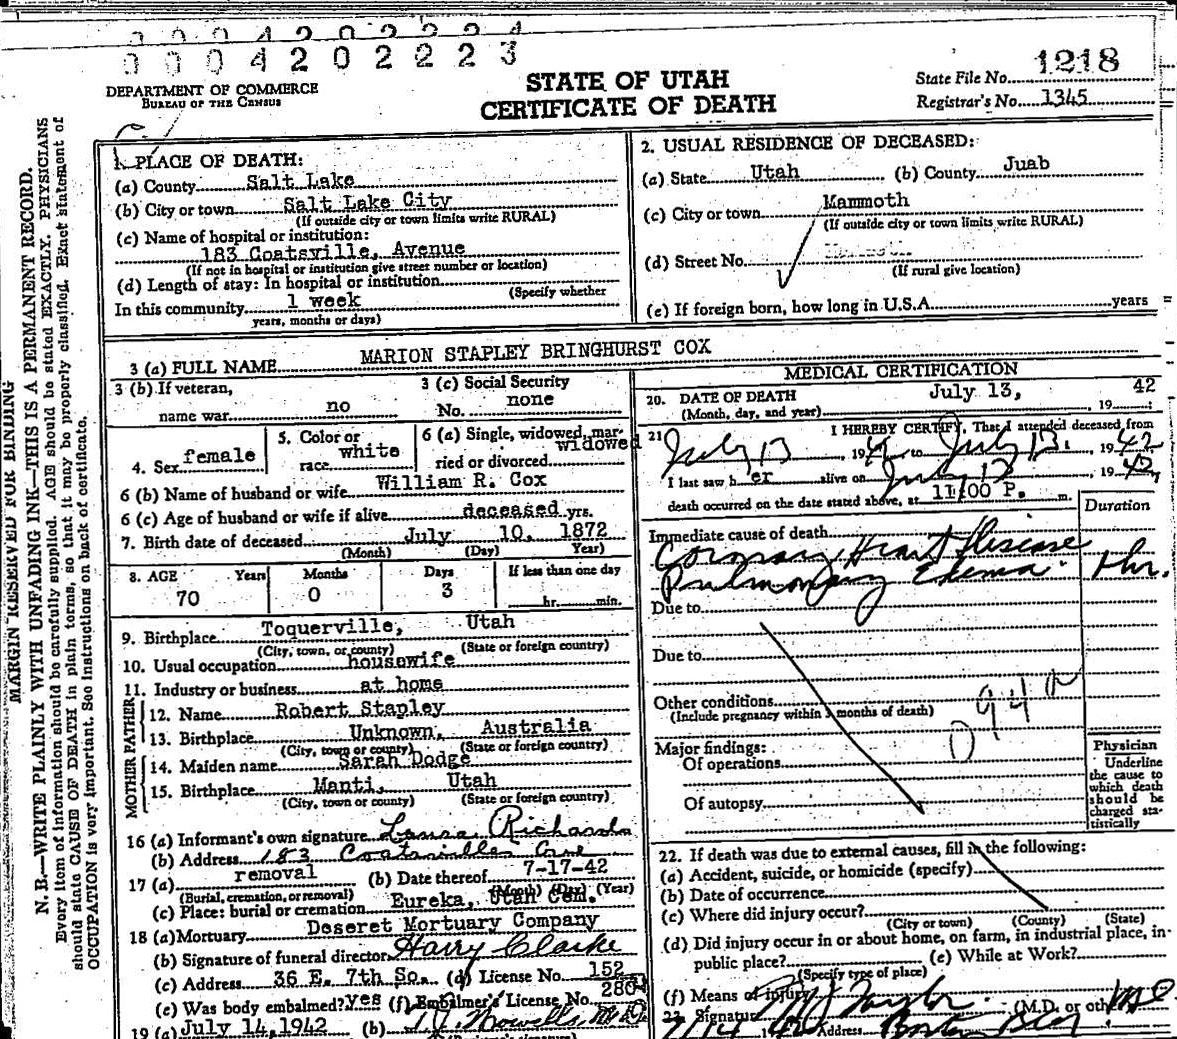 0004202224
0004202223
DEPARTMENT OF COMMERCE
BUREAU OF THE CENSUS
STATE OF UTAH
CERTIFICATE OF DEATH
State File No. 1218
Registrar's No. 1345
MARGIN RESERVED FOR BINDING
N. B.—WRITE PLAINLY WITH UNFADING INK—THIS IS A PERMANENT RECORD.
Every item of information should be carefully supplied. AGE should be stated EXACTLY. PHYSICIANS
should state CAUSE OF DEATH in plain terms, so that it may be properly classified. Exact statement of
OCCUPATION is very important. See instructions on back of certificate.
1. PLACE OF DEATH:
(a) County Salt Lake
(b) City or town Salt Lake City
(If outside city or town limits write RURAL)
(c) Name of hospital or institution:
183 Coatsville, Avenue
(If not in hospital or institution give street number or location)
(d) Length of stay: In hospital or institution
(Specify whether
In this community 1 week
years, months or days)
2. USUAL RESIDENCE OF DECEASED:
(a) State Utah (b) County Juab
(c) City or town Mammoth
(If outside city or town limits write RURAL)
(d) Street No.
(If rural give location)
(e) If foreign born, how long in U.S.A. years
3 (a) FULL NAME MARION STAPLEY BRINGHURST COX
3 (b) If veteran,
name war no
3 (c) Social Security
No. none
4. Sex female
5. Color or
race white
6 (a) Single, widowed, mar-
ried or divorced widowed
6 (b) Name of husband or wife William R. Cox
6 (c) Age of husband or wife if alive deceased yrs.
7. Birth date of deceased July 10, 1872
(Month) (Day) Year)
8. AGE Years Months Days If less than one day
70 0 3 hr. min.
9. Birthplace Toquerville, Utah
(City, town, or county) (State or foreign country)
10. Usual occupation housewife
11. Industry or business at home
FATHER
12. Name Robert Stapley
13. Birthplace Unknown, Australia
(City, town or county) (State or foreign country)
MOTHER
14. Maiden name Sarah Dodge
15. Birthplace Manti, Utah
(City, town or county) (State or foreign country)
16 (a) Informant's own signature Laura Richards
(b) Address 183 Coatsville Ave
17 (a) removal (b) Date thereof 7-17-42
(Burial, cremation, or removal) (Month) (Day) (Year)
(c) Place: burial or cremation Eureka, Utah Cem.
18 (a) Mortuary Deseret Mortuary Company
(b) Signature of funeral director Harry Clarke
(c) Address 36 E. 7th So. (d) License No. 152
(e) Was body embalmed? yes (f) Embalmer's License No. 280
19 (a) July 14, 1942 (b)
MEDICAL CERTIFICATION
20. DATE OF DEATH July 13, 1942
(Month, day, and year)
21 I HEREBY CERTIFY, That I attended deceased from
July 13, 1942 to July 13, 1942
I last saw her alive on July 13 1942,
death occurred on the date stated above, at 11:00 P. m.
Duration
Immediate cause of death
Coronary Heart Disease
Pulmonary Edema. 1 hr.
Due to
Due to
Other conditions
(Include pregnancy within 3 months of death)
94
Major findings:
Of operations
Of autopsy
Physician
Underline
the cause to
which death
should be
charged sta-
tistically
22. If death was due to external causes, fill in the following:
(a) Accident, suicide, or homicide (specify)
(b) Date of occurrence
(c) Where did injury occur?
(City or town) (County) (State)
(d) Did injury occur in or about home, on farm, in industrial place, in
public place? (e) While at Work?
(Specify type of place)
(f) Means of injury
23. Signature Taylor. (M.D. or other) MD
7/14 1942 Address Boston Bldg.